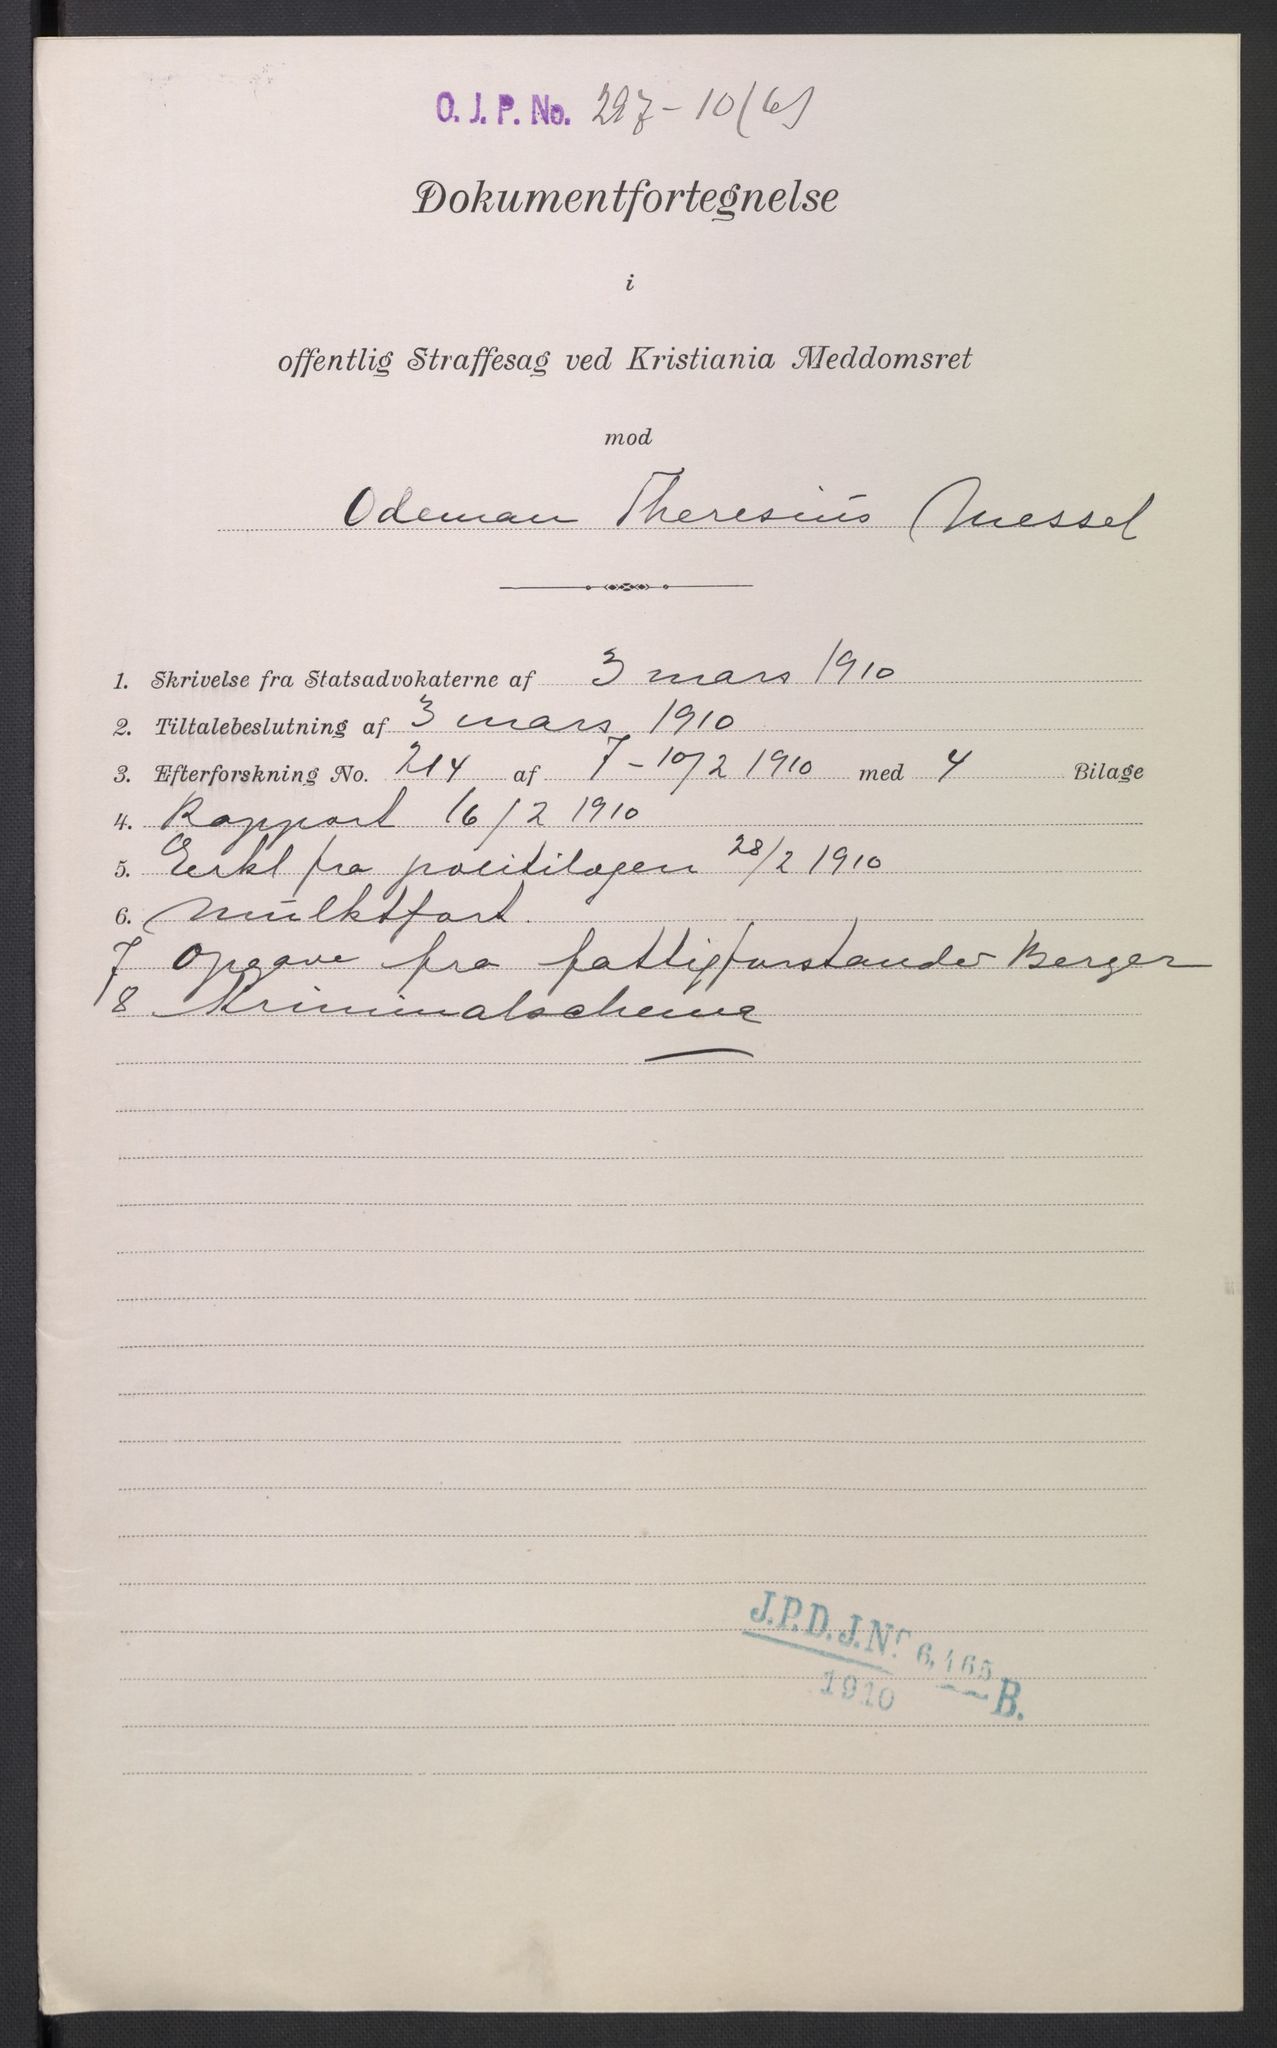 O. J. P. No. 297-10 (6)
Dokumentfortegnelse
i
offentlig Straffesag ved Kristiania Meddomsret
mod
Odeman Theresius Messel
1. Skrivelse fra Statsadvokaterne af 3 mars 1910
2. Tiltalebeslutning af 3 mars 1910
3. Efterforskning No. 214 af 7-10/2 1910 med 4 Bilage
4. Rapport 16/2 1910
5. Erkl fra politilægen 28/2 1910
6. Mulktfort.
7 Opgave fra fattigforstander Berger
8 Kriminalschema
J.P.D. J.Nr. 6,465 B.
1910